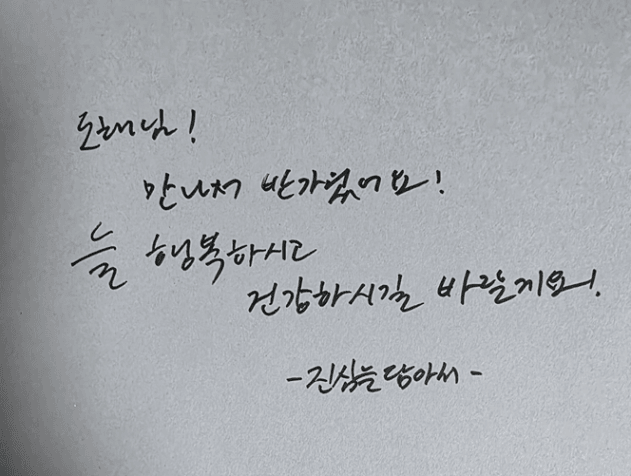 도해님!
만나서 반가웠어요!
늘 행복하시고
건강하시길 바랄게요!
-진심을담아서-